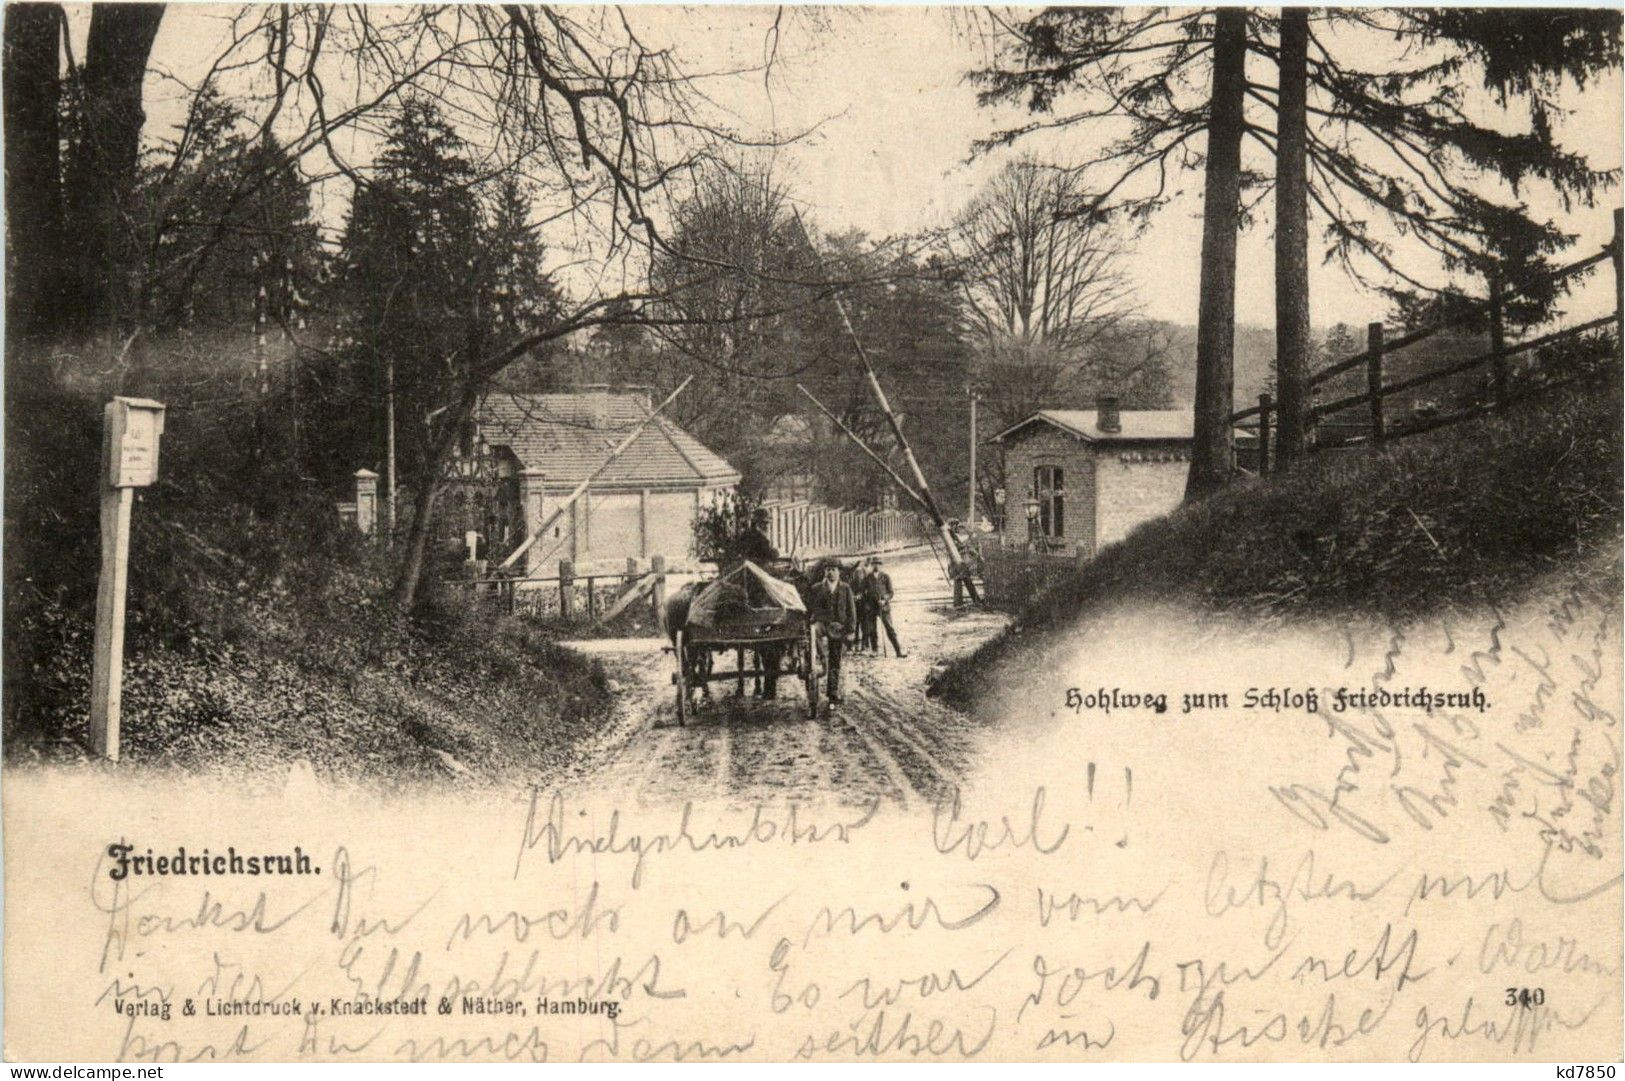 Hohlweg zum Schloß Friedrichsruh.
Friedrichsruh.
Vielgeliebster Carl!!
Denkst Du noch an mir vom letzten mal
in der Ellsschlucht. Es war doch zu nett. Warum
hast Du mich denn seither im Stiche gelassen
Verlag & Lichtdruck v. Knackstedt & Näther, Hamburg.
340
Friederichsruh
kd7850